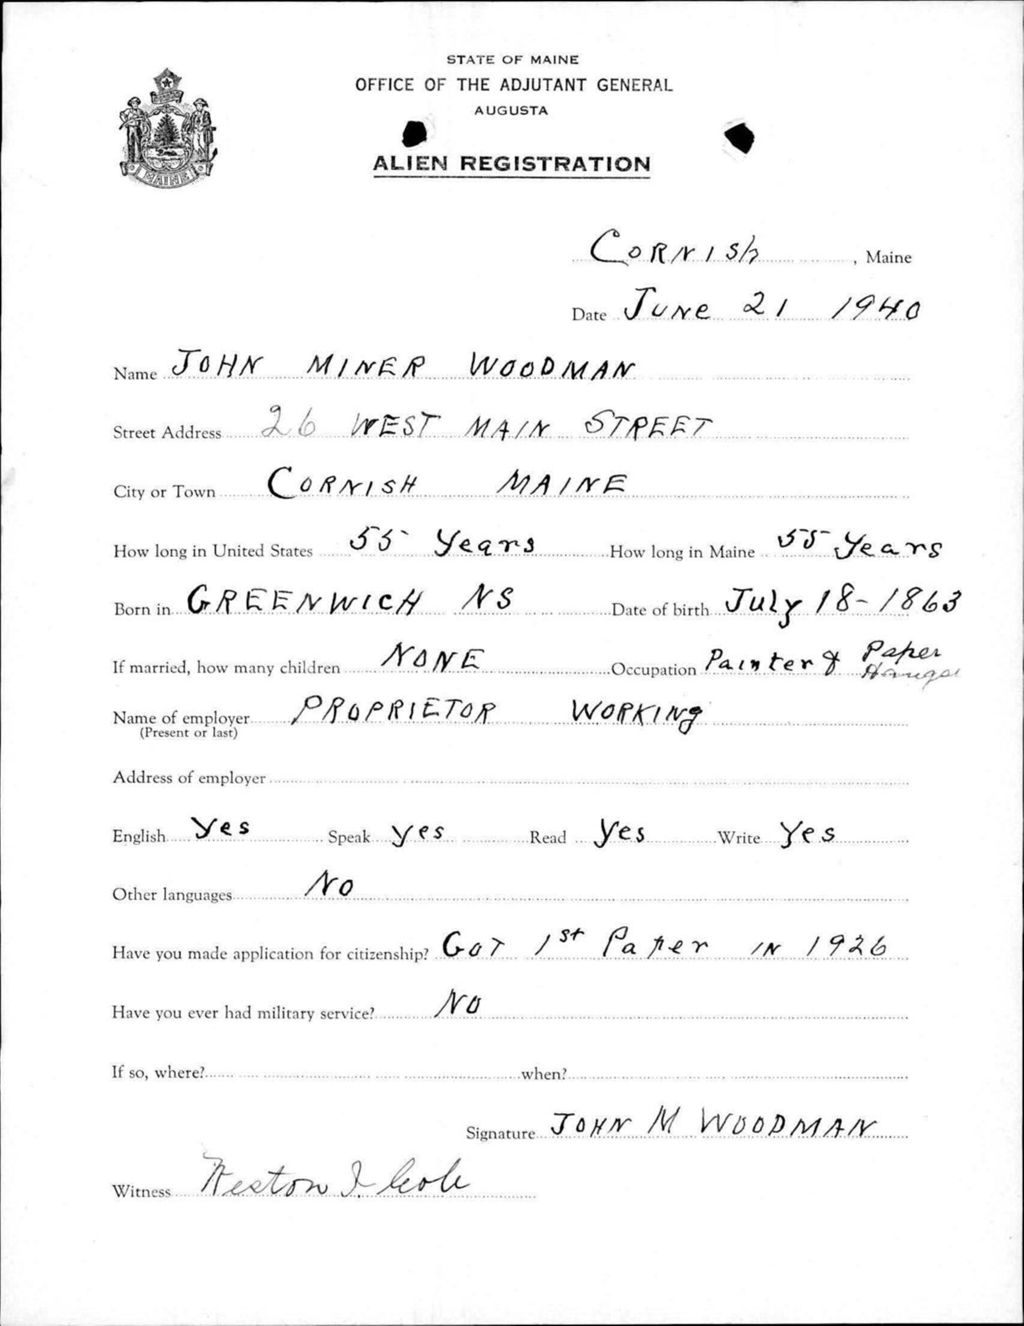 STATE OF MAINE
OFFICE OF THE ADJUTANT GENERAL
AUGUSTA
ALIEN REGISTRATION
MAINE
Cornish, Maine
Date June 21 1940
Name JOHN MINER WOODMAN
Street Address 26 WEST MAIN STREET
City or Town CORNISH MAINE
How long in United States 55 Years How long in Maine 55 Years
Born in GREENWICH NS Date of birth July 18-1863
If married, how many children NONE Occupation Painter & Paper Hanger
Name of employer PROPRIETOR WORKINg
(Present or last)
Address of employer
English Yes Speak yes Read Yes Write Yes
Other languages No
Have you made application for citizenship? GOT 1st Paper IN 1926
Have you ever had military service? NO
If so, where? when?
Signature JOHN M WOODMAN
Witness Weston I. Cole